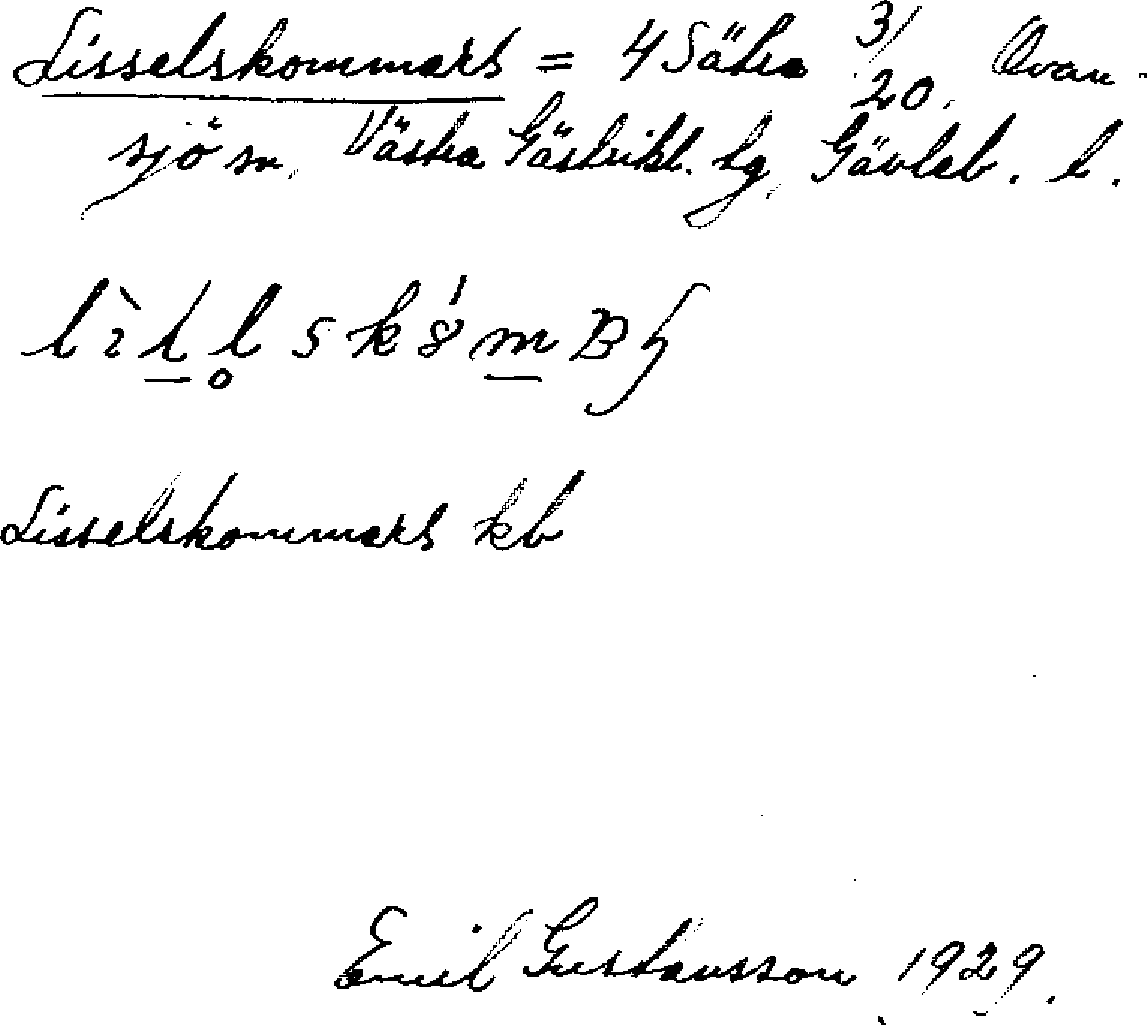 Lisselskommars = 4 Sätra 3/20. Ovan-
sjö sn. Västra Gästrikl. tg. Gävleb. l.
Lisselskommars kb
Emil Gustavsson 1929.